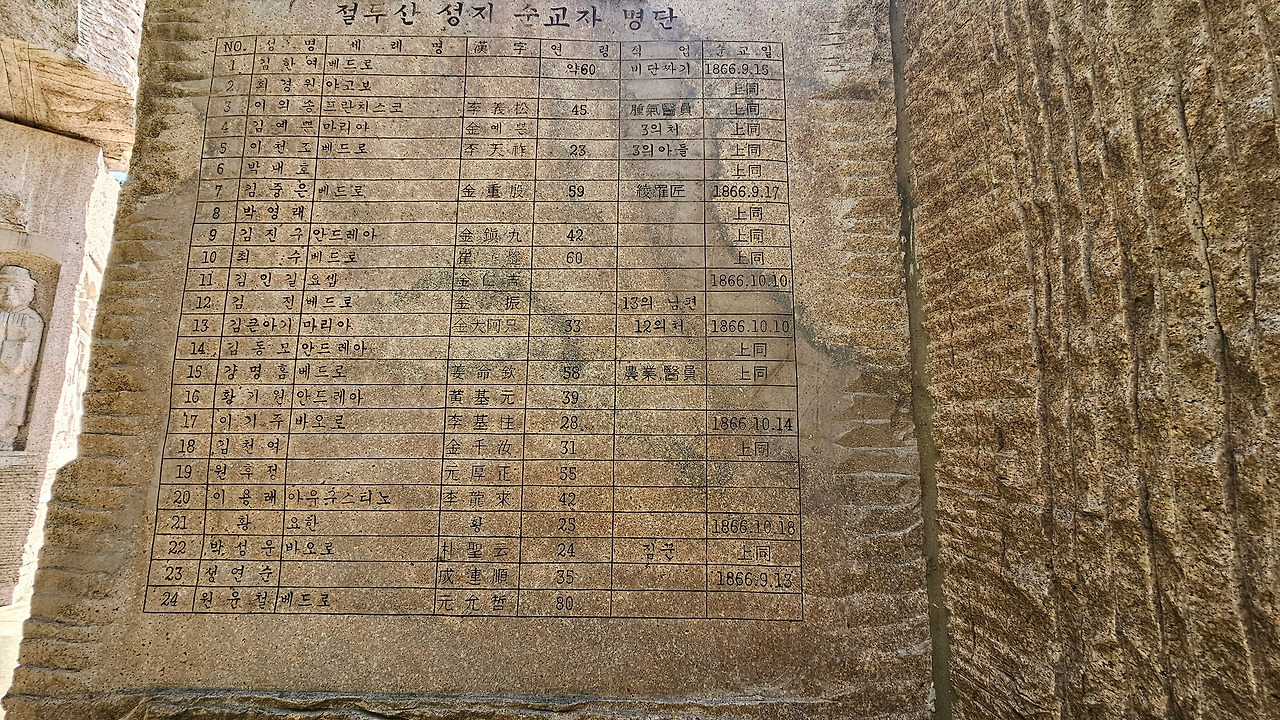 절두산 성지 순교자 명단
NO. 성 명 세 례 명 漢 字 연 령 직 업 순 교 일
1 김 한 여 베드로 약60 비단짜기 1866.9.15
2 최 경 원 야고보 上同
3 이 의 송 프란치스코 李 義 松 45 腫氣醫員 上同
4 김 예 쁜 마리아 金 예 쁜 3의처 上同
5 이 천 조 베드로 李 天 祚 23 3의아들 上同
6 박 내 호 上同
7 김 중 은 베드로 金 重 殷 59 綾羅匠 1866.9.17
8 박 영 래 上同
9 김 진 구 안드레아 金 鎭 九 42 上同
10 최 수 베드로 崔 60 上同
11 김 인 길 요셉 金 仁 吉 1866.10.10
12 김 진 베드로 金 振 13의 남편
13 김큰아기 마리아 金大阿只 33 12의처 1866.10.10
14 김 동 모 안드레아 上同
15 강 명 흠 베드로 姜 命 欽 58 農業 醫員 上同
16 황 기 원 안드레아 黃 基 元 39
17 이 기 주 바오로 李 基 柱 28 1866.10.14
18 김 천 여 金 千 汝 31 上同
19 원 후 정 元 厚 正 55
20 이 용 래 아우구스티노 李 龍 來 42
21 황 요한 황 25 1866.10.18
22 박 성 운 바오로 朴 聖 云 24 上同
23 성 연 순 成 連 順 35 1866.9.13
24 원 윤 철 베드로 元 允 哲 80